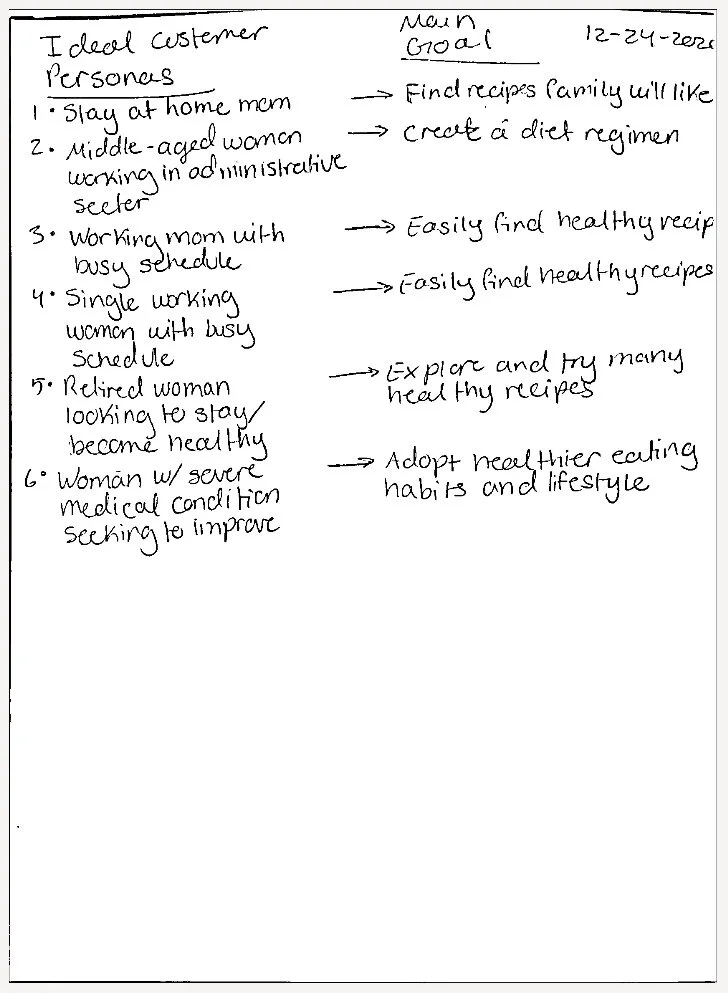 Ideal Customer
Personas
Main
Goal
12-24-202
1. Stay at home mom → Find recipes family will like
2. Middle-aged woman → Create a diet regimen
working in administrative
secter
3. Working mom with → Easily find healthy recip
busy schedule
4. Single working → Easily find healthy recipes
woman with busy
schedule
5. Retired woman → Explore and try many
looking to stay/ healthy recipes
become healthy
6. Woman w/ severe → Adopt healthier eating
medical condition habits and lifestyle
seeking to improve